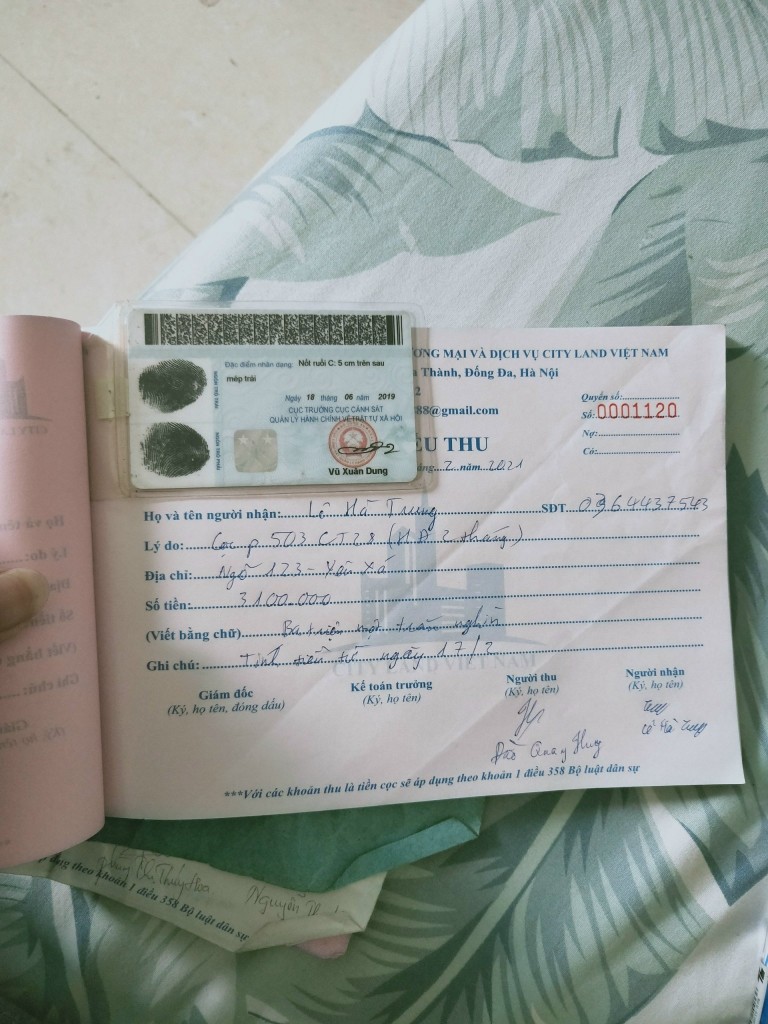 Đặc điểm nhận dạng: Nốt ruồi C: 5 cm trên sau
mép trái
NGÓN TRỎ TRÁI
Ngày 18 tháng 06 năm 2019
CỤC TRƯỞNG CỤC CẢNH SÁT
QUẢN LÝ HÀNH CHÍNH VỀ TRẬT TỰ XÃ HỘI
NGÓN TRỎ PHẢI
Vũ Xuân Dung
ƠNG MẠI VÀ DỊCH VỤ CITY LAND VIỆT NAM
Thành, Đống Đa, Hà Nội
2
88@gmail.com
Quyển số:
Số: 0001120
Nợ:
Có:
ẾU THU
tháng 2 năm 2021
Họ và tên người nhận: Lê Hà Trung SĐT 0364437543
Lý do: Cọc p 503 CT28 (HĐ 2 tháng)
Địa chỉ: Ngõ 123 - Yên Xá
Số tiền: 3100.000
(Viết bằng chữ) Ba triệu một trăm nghìn
Ghi chú: Tính tiền từ ngày 17/2
CITY LAND VIET NAM
Giám đốc Kế toán trưởng Người thu Người nhận
(Ký, họ tên, đóng dấu) (Ký, họ tên) (Ký, họ tên) (Ký, họ tên)
Đào Quang Huy Lê Hà Trung
***Với các khoản thu là tiền cọc sẽ áp dụng theo khoản 1 điều 358 Bộ luật dân sự
Nguyễn
dụng theo khoản 1 điều 358 Bộ luật dân sự